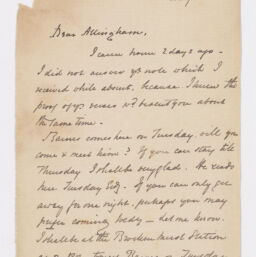 Dear Allingham,
I came home 2 days ago –
I did not answer yr note which I
received while about, because I knew the
proof of yr verses wd. be sent you about
the same time.
Barnes comes here on Tuesday, will you
come & meet him? If you can stay till
Thursday I shall be very glads. He reads
here Tuesday Evg. If you can only get
away for one night, perhaps you may
prefer coming Wedy — let me know.
I shall be at the Brockenhurst Station
Tuesday